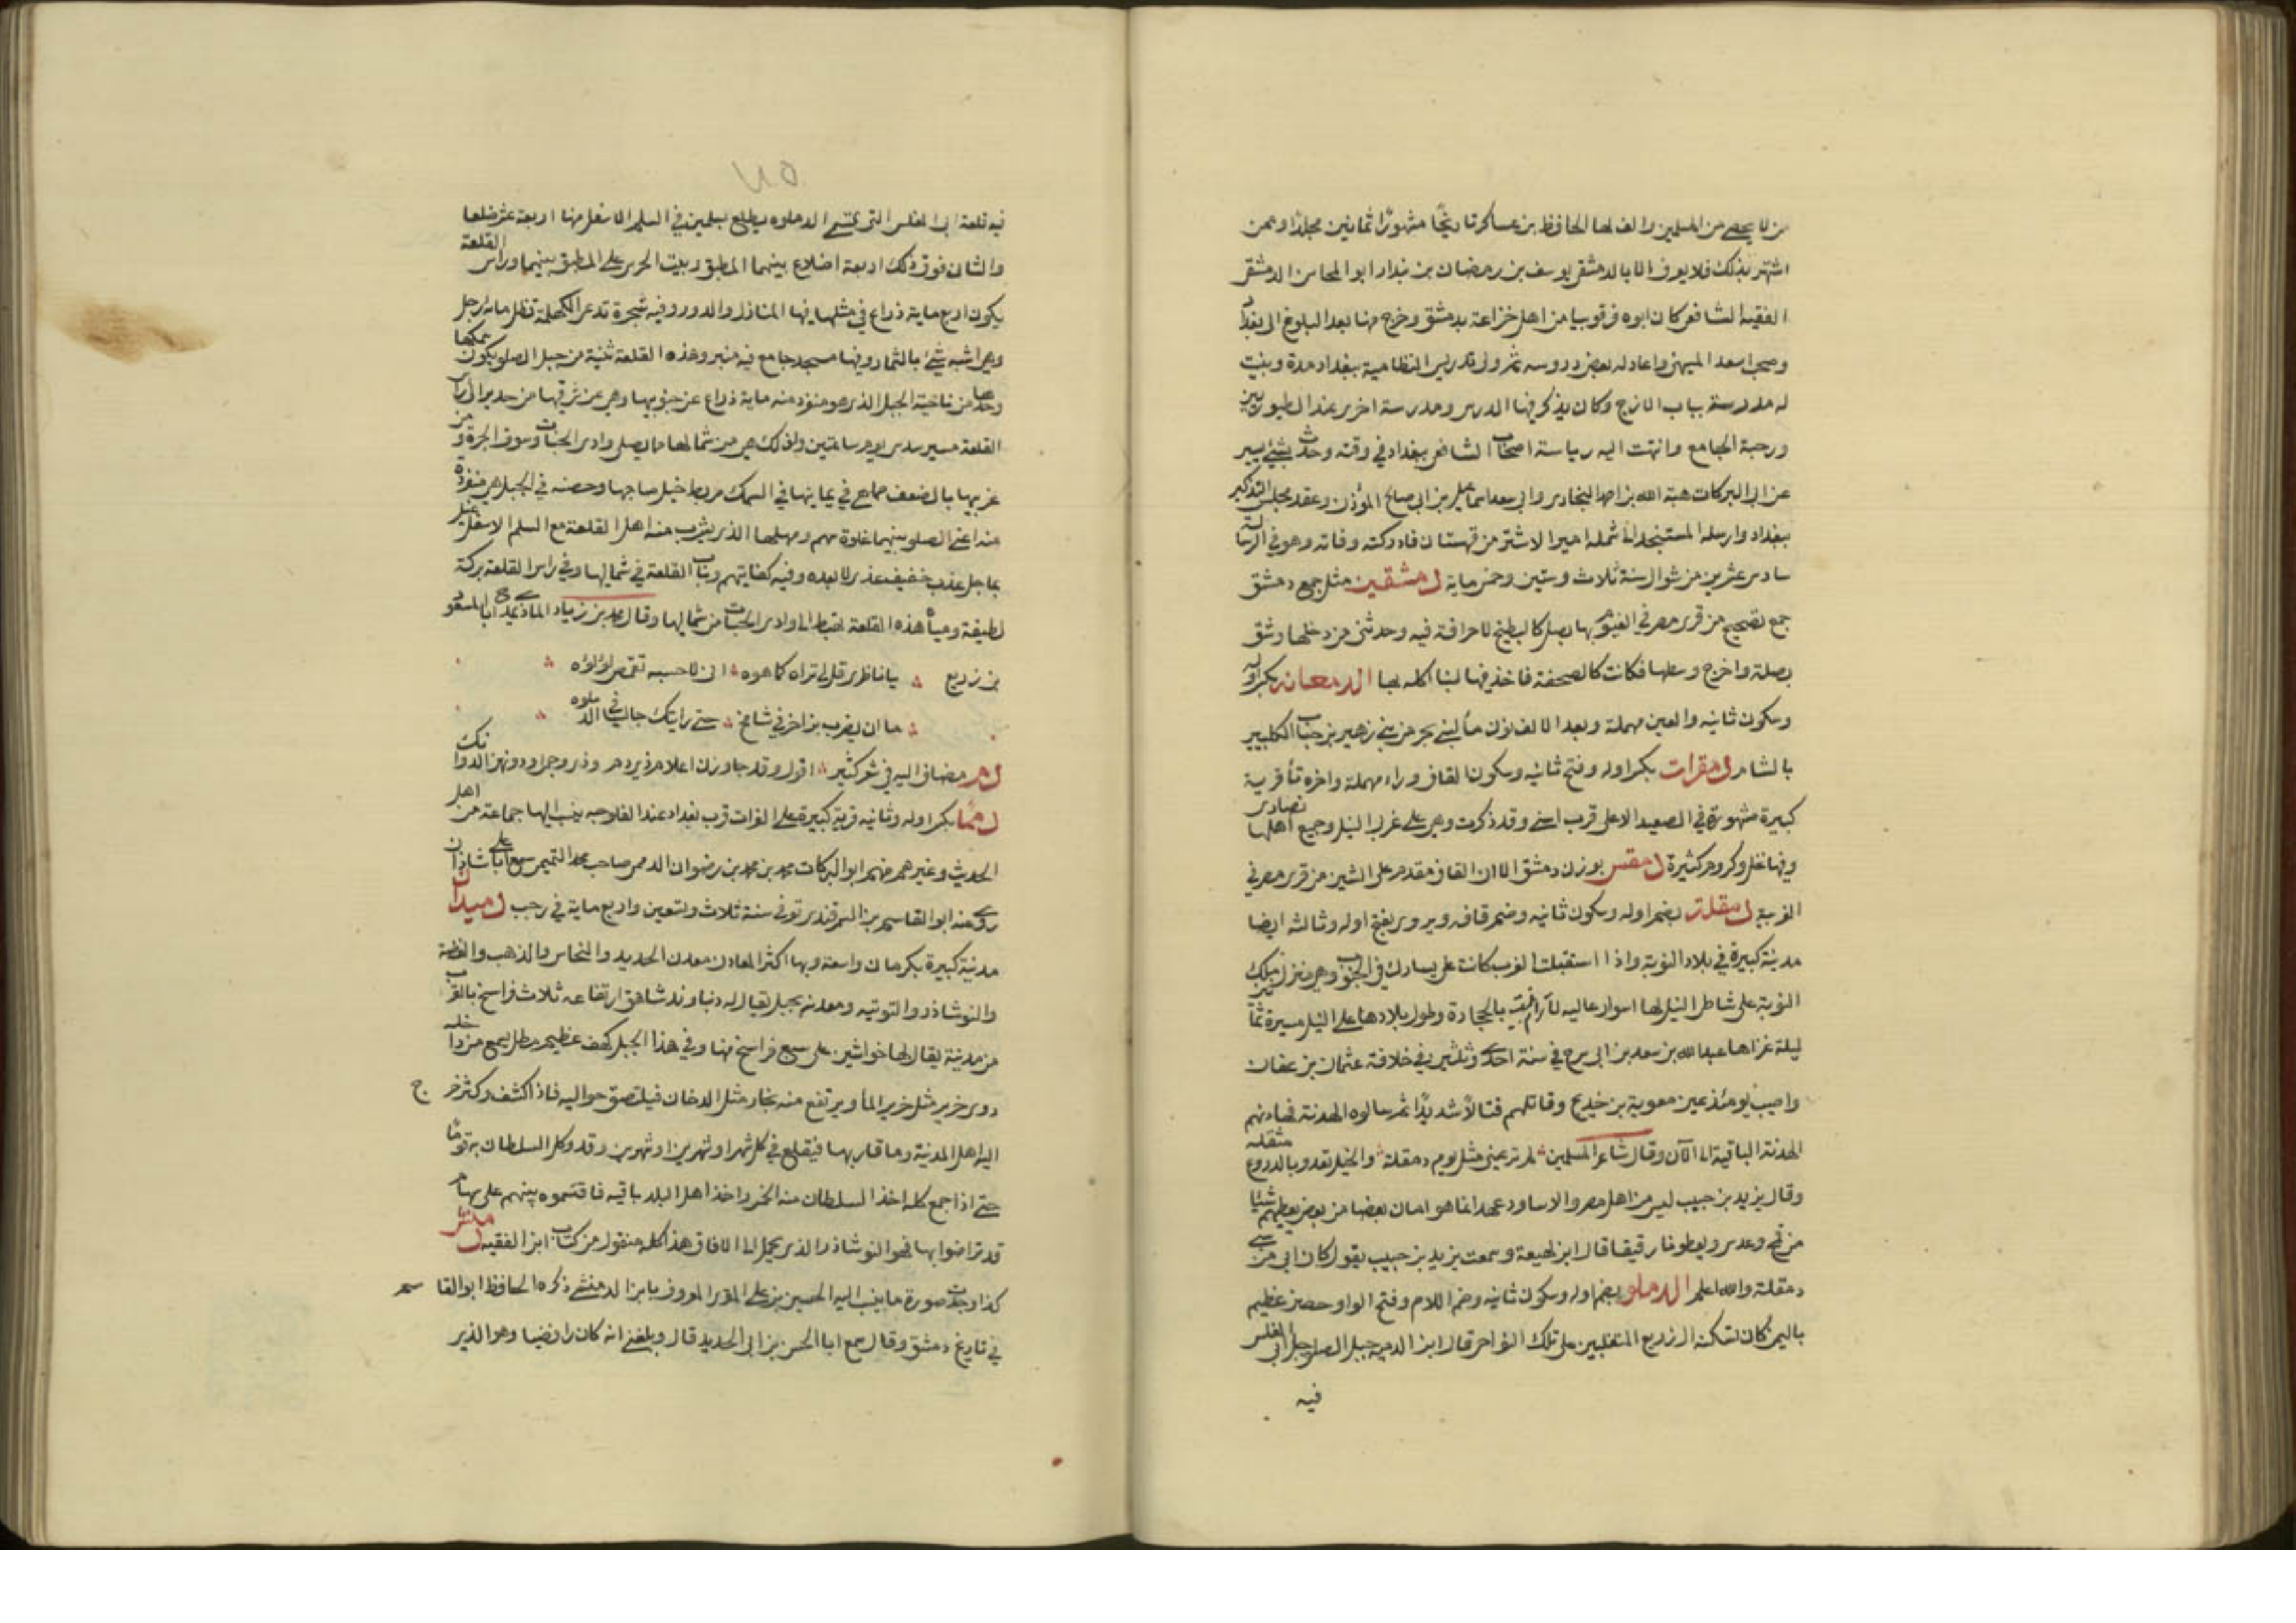 من لا يحصى من المسلمين والف لها الحافظ بن عساكر تاريخا مشهورا ثمانين مجلدا وممن
اشتهر بذلك فلا يعرف الا بالدمشقى يوسف بن رمضان بن بندار ابو المحاسن الدمشقى
الفقيه الشافعى كان ابوه قرقوبيا من اهل خزاعة بدمشق وخرج منها بعد البلوغ الى بغداد
وصحب اسعد الميهنى واعاد له بعض دروسه ثم ولى تدريس النظامية ببغداد مدة وبنيت
له مدرسة بباب الازج وكان يذكر فيها الدرس ومدرسة اخرى عند الطيوريين
ورحبة الجامع وانتهت اليه رياسة اصحاب الشافعى ببغداد فى وقته وحدث بشئ يسير
عن ابى البركات هبة الله بن احمد البخارى وابى سعد اسماعيل بن ابى صالح المؤذن وعقد مجلس التذكير
ببغداد وارسله المستنجد الى شملة امير الاشتر من قهستان فادركته وفاته وهو فى الرسالة
سادس عشرين من شوال سنة ثلاث وستين وخمس ماية دمشقين مثل جمع دمشق
جمع تصحيح من قرى مصر فى الفيوم بها بصل كالبطيخ لا حرافة فيه وحدثنى من دخلها وشق
بصلة واخرج وسطها فكانت كالصحفة فاخذ فيها لبنا اكله بها الدمعانه بكسر اوله
وسكون ثانيه والعين مهملة وبعد الالف نون ماء لبنى بحر من بنى زهير بن جناب الكلبيين
بالشام دمقرات بكسر اوله وفتح ثانيه وسكون القاف وراء مهملة واخره تاء قرية
كبيرة مشهورة فى الصعيد الاعلى قرب اسنى وقد ذكرت وهى على غربى النيل وجميع اهلها نصارى
وفيها نخل وكروم كثيرة دمقس بوزن دمشق الا ان القاف مقدم على الشين من قرى مصر فى
الغربية دمقلة بضم اوله وسكون ثانيه وضم قافه ويروى بفتح اوله وثالثه ايضا
مدينة كبيرة فى بلاد النوبة واذا استقبلت الغرب كانت على يسارك فى الجنوب وهى منزل ملك
النوبة على شاطى النيل لها اسوار عاليه لا ترام مبنية بالحجارة وطول بلادها على النيل مسيرة ثمانين
ليلة غزاها عبد الله بن سعد بن ابى سرح فى سنة احدى وثلثين فى خلافة عثمان بن عفان
واصيب يومئذ عين معوية بن خديج وقاتلهم قتالا شديدا ثم سالوه الهدنة فهادنهم
الهدنة الباقية الى الآن وقال شاعر المسلمين لم تر عينى مثل يوم دمقلة والخيل تعدو بالدروع مثقله
وقال يزيد بن حبيب ليس من اهل مصر والاساود عهد انما هو امان بعضنا من بعض نعطيهم شيئا
من قمح وعدس ويعطونا رقيقا قال ابن لهيعة وسمعت يزيد بن حبيب يقول كان ابى من سبى
دمقلة والله اعلم الدملوه بضم اوله وسكون ثانيه وضم اللام وفتح الواو حصن عظيم
باليمن كان تسكنه ال زريع المتغلبين على تلك النواحى قال ابن الدمينه جبل الصلو جبل ابى المغلس
فيه
فيه قلعة ابى المغلس التى تسمى الدملوه يطلع بسلمين فى السلم الاسفل منها اربعة عشر ضلعا
والثانى فوق ذلك اربعة اضلاع بينهما المطبق وبيت الحرس على المطبق بينهما وراس القلعة
يكون اربع ماية ذراع فى مثلها فيها المنازل والدور وفيه شجرة تدعى الكهملة تظل ماية رجل
وهى اشبه شئ بالثمار وفيها مسجد جامع فيه منبر وهذه القلعة ثنية من جبل الصلو يكون سمكها
وحدها من ناحية الجبل الذى هو منفرد منه ماية ذراع عن جنوبيها وهى عن شرقيها من حدير الى راس
القلعة مسير سدس يوم ساعتين وكذلك هى من شمالها مما يصلى وادى الجنات وسوق الجرة ومن
غربيها بالضعف مما هى فى يمانيها فى السمك مربط خيل صاحبها وحصنه فى الجبل هى منفردة
منه اعنى الصلو بينهما غلوة سهم ومهلها الذى يشرب منه اهل القلعة مع السلم الاسفل غيل
بماجل عذب خفيف عذى لا بعده وفيه كفايتهم وباب القلعة فى شمالها وفى راس القلعة بركة
لطيفة ومياه هذه القلعة تهبط الى وادى الجنات من شمالها وقال محمد بن زياد الماذنى يمدح ابا السعود
بن زريع يا ناظرى قل لى تراه كما هوه انى لاحسبه تقمص لؤلؤه
ما ان بضرب بن اخر فى شامخ حتى رايتك جالسا فى الدملوه
دم مضاف اليه فى شعر كثير اقول وقد جاوزن اعلام ذى دم وذى وجمى او دونهن الدوانك
دمما بكسر اوله وثانيه قرية كبيرة على الفرات قرب بغداد عند الفلاجه ينسب اليها جماعة من اهل
الحديث وغيرهم منهم ابو البركات محمد بن محمد بن رضوان الدممى صاحب محمد التميمى سمع ابا على شاذان
روى عنه ابو القاسم بن السمرقندى توفى سنة ثلاث وتسعين واربع ماية فى رجب دميدان
مدينة كبيرة بكرمان واسعة وبها اكثر المعادن معدن الحديد والنحاس والذهب والفضة
والنوشاذر والتوتيه ومعدنه بجبل يقال له دنباوند شاهق ارتفاعه ثلاث فراسخ بالقرب
من مدينة يقال لها خواشير على سبع فراسخ منها وفى هذا الجبل كهف عظيم مظلم يسمع من داخله
دوى خرير مثل خرير الماء ويرتفع منه بخار مثل الدخان فيلتصق حواليه فاذا كثف وكثر خرج
اليه اهل المدينة وما قاربها فيقلع فى كل شهر او شهرين وقد وكل السلطان به قوما
حتى اذا جمع كله اخذ السلطان منه الخمس واخذ اهل البلد باقيه فاقتسموه بينهم على سهام
قد تراضوا بها فهو النوشاذر الذى يحمل الى الافاق هذا كله منقول من كتاب ابن الفقيه دمنش
كذا وجدت صورة ما ينسب اليه الحسين بن على المقرئ المعروف بابن الدمنشى ذكره الحافظ ابو القاسم
فى تاريخ دمشق وقال سمع ابا الحسن بن ابى الحديد قال وبلغنى انه كان رافضيا وهو الذى